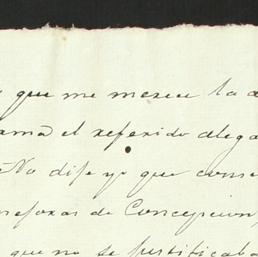 que me merece la
el referido alega
No dije yo que conse
de Concepcion,
que no se justificaba